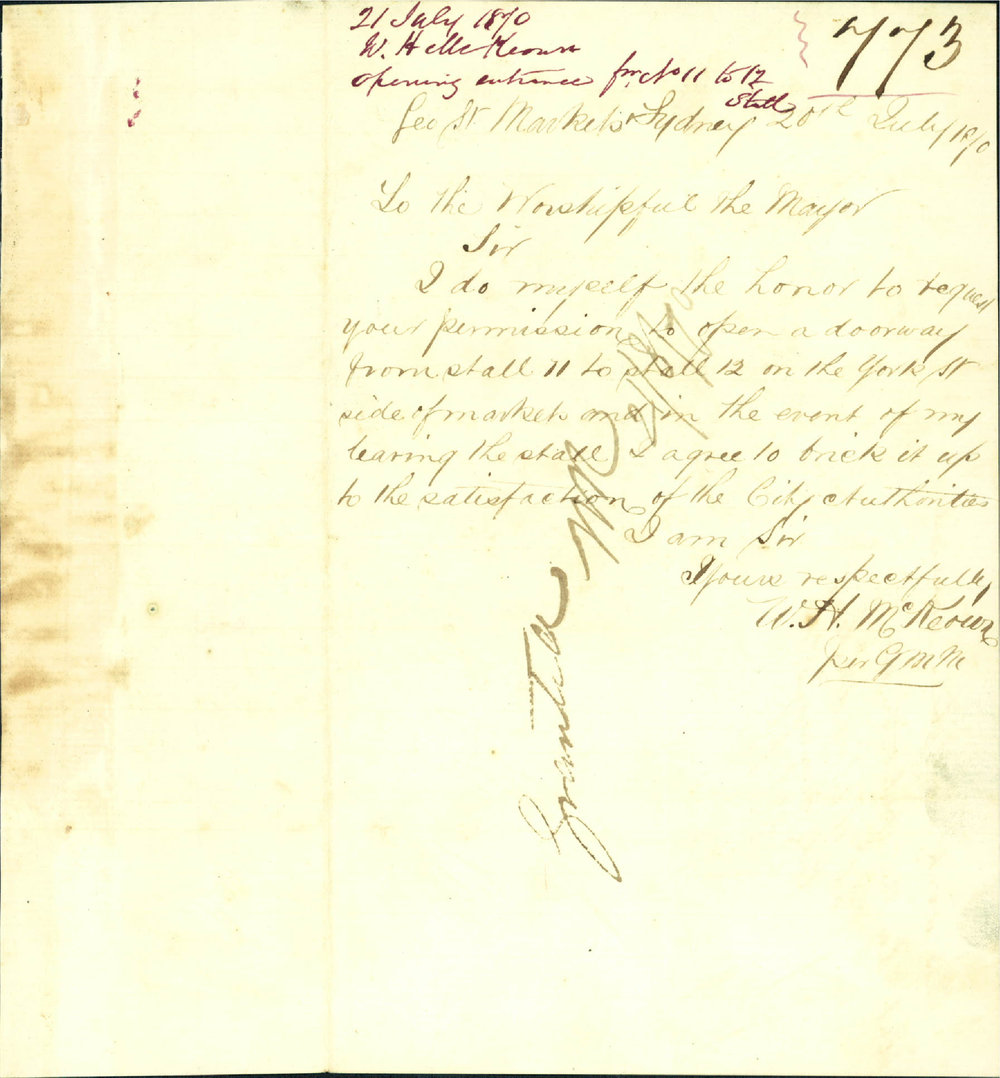 21 July 1870
773
W. H McKeown
opening entrance frm No 11 to 12
Stall
Geo St Markets Sydney 20th July 1870
To the Worshipful the Mayor
Sir
I do myself the honor to request
your permission to open a doorway
from stall 11 to stall 12 on the York St
side of markets and in the event of my
leaving the stall I agree to brick it up
to the satisfaction of the City Authorities
I am Sir
Yours respectfully
W. H. McKeown
per G McM
Granted
21/7/70